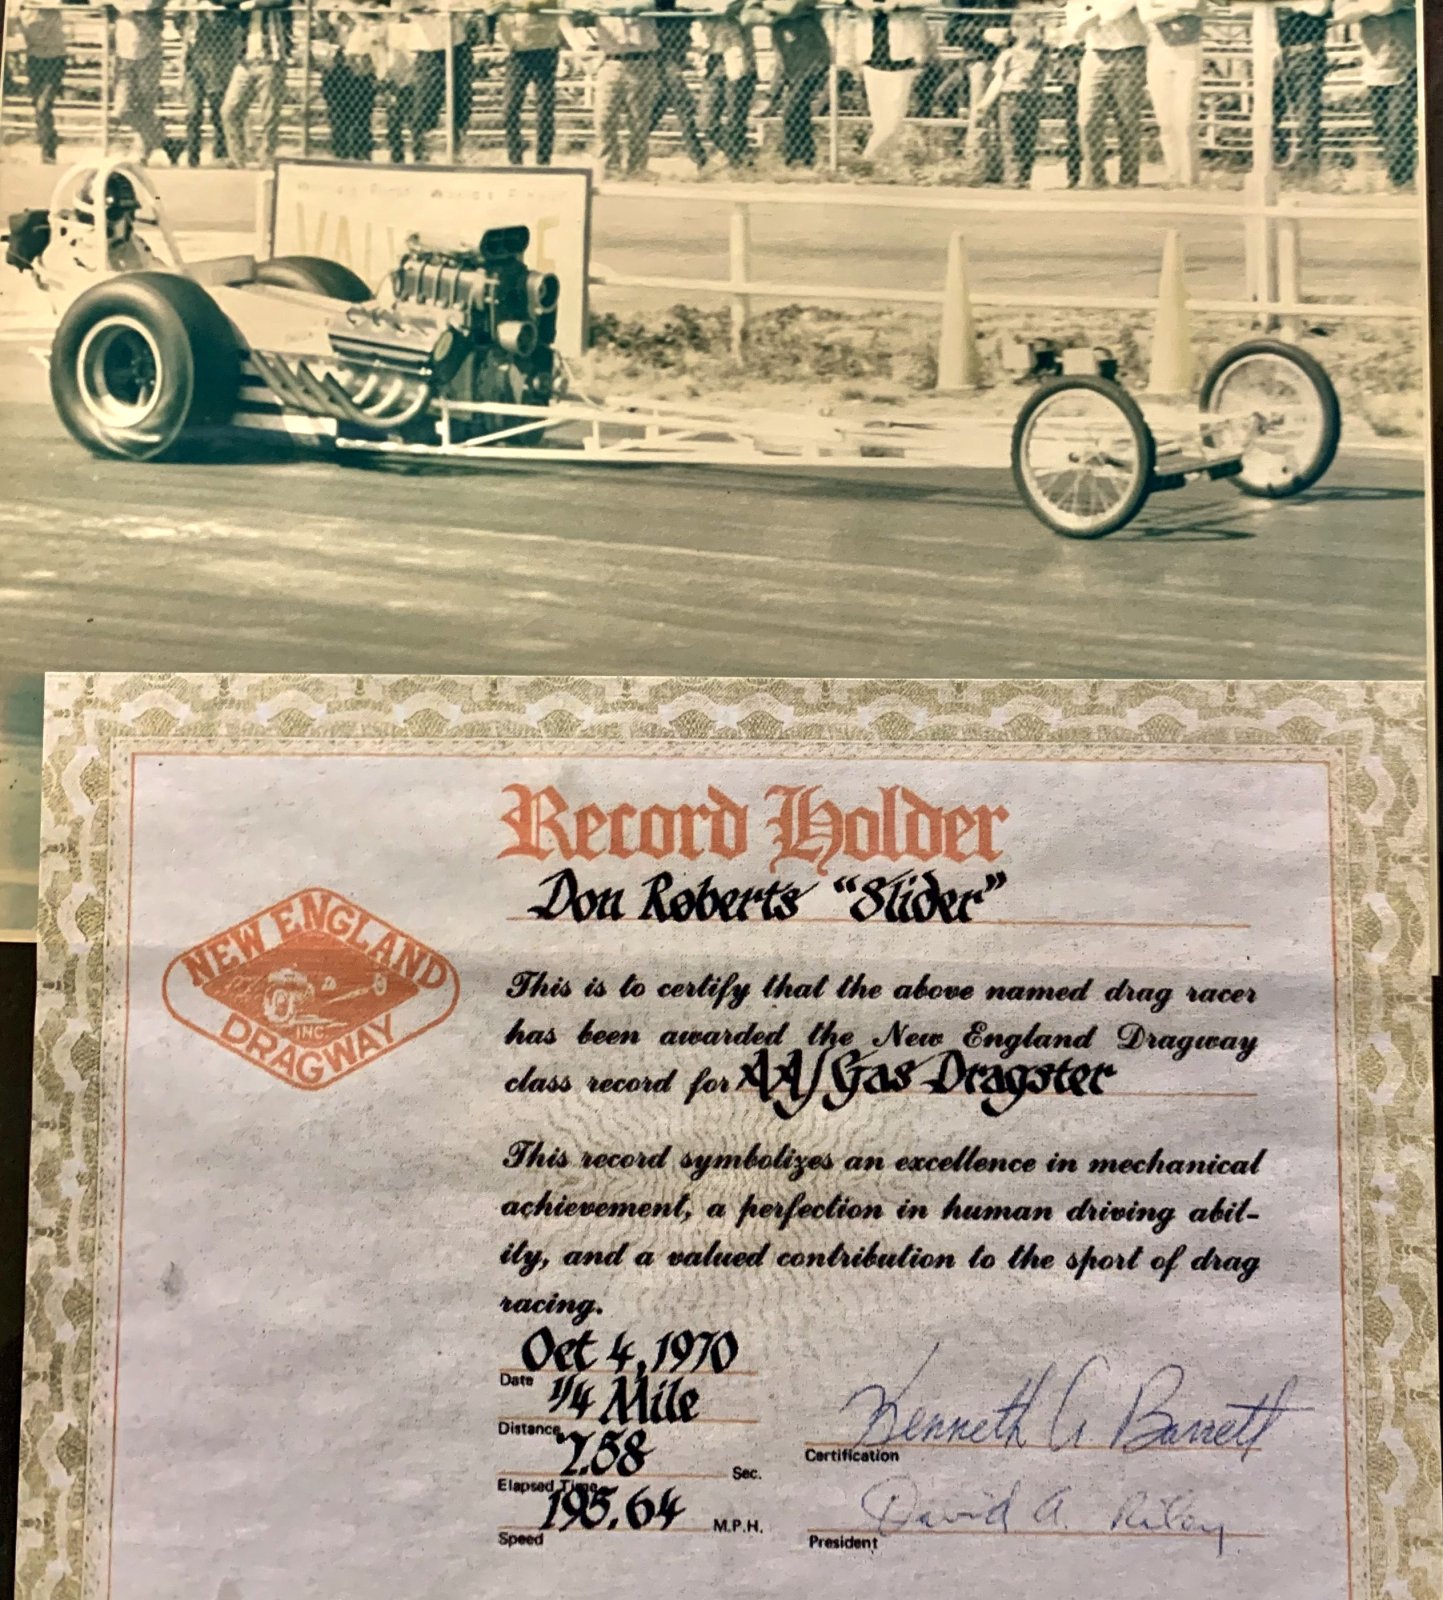 Record Holder
Don Roberts "Slider"
NEW ENGLAND
DRAGWAY
INC
This is to certify that the above named drag racer
has been awarded the New England Dragway
class record for AA/Gas Dragster
This record symbolizes an excellence in mechanical
achievement, a perfection in human driving abil-
ity, and a valued contribution to the sport of drag
racing.
Oct 4, 1970
Date
1/4 Mile
Distance
7.58
Elapsed Time Sec.
195.64
Speed M.P.H.
Kenneth A Barrett
Certification
David A. Riley
President